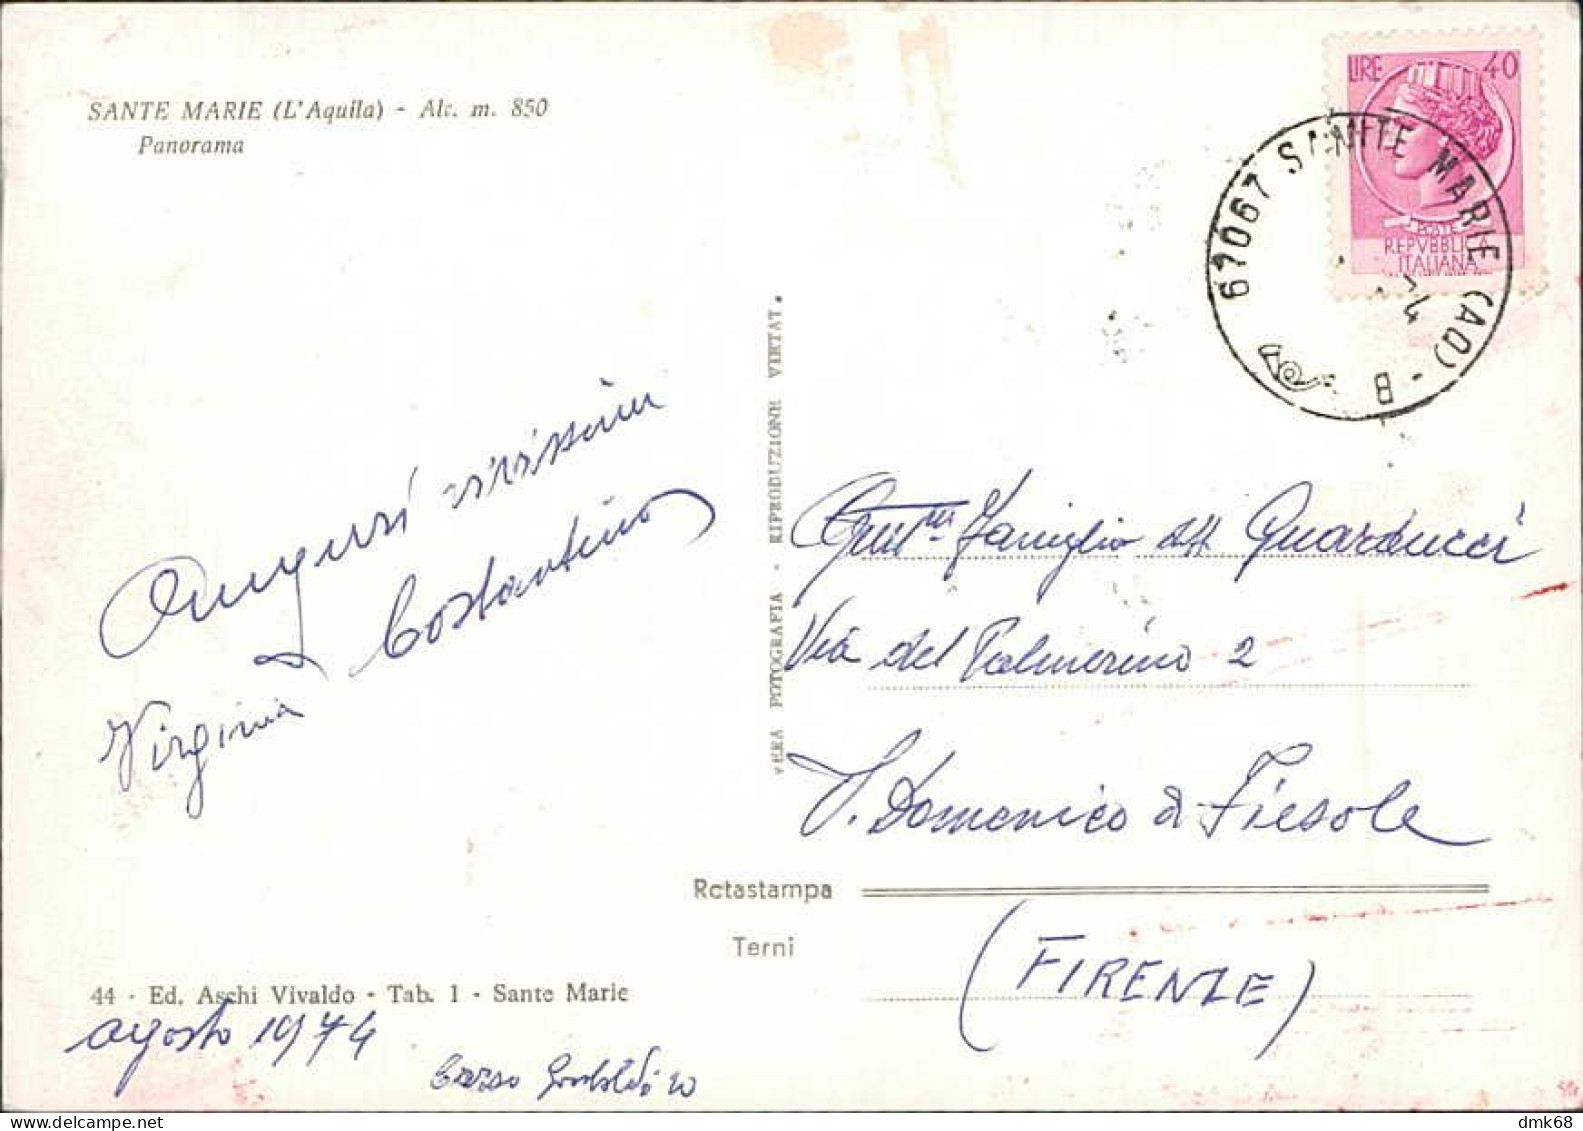 SANTE MARIE (L'Aquila) - Alt. m. 850
Panorama
LIRE 40
POSTE
REPVBBLICA
ITALIANA
67067 SANTE MARIE (AQ) - B
VERA FOTOGRAFIA - RIPRODUZIONE VIETAT.
Auguri vivissimi
Costantino
Virginia
Famiglia
Guarducci
Via del Palmerino 2
S. Domenico di Fiesole
(FIRENZE)
Rotastampa
Terni
44 - Ed. Aschi Vivaldo - Tab. 1 - Sante Marie
agosto 1974
dmk68